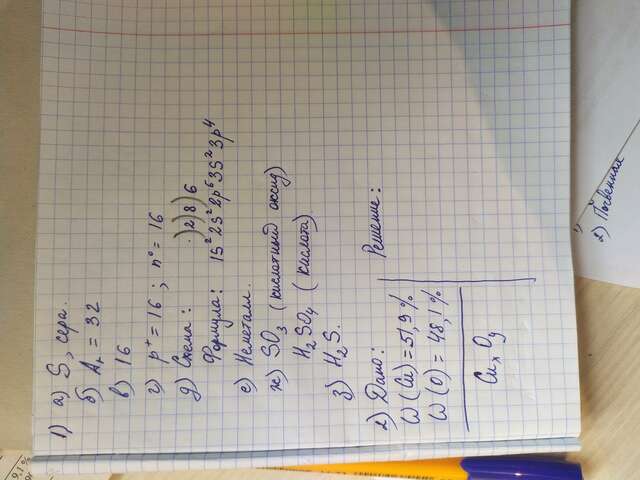 1) а) S, сера.
б) Ar = 32
в) 16
г) p⁺ = 16 ; n⁰ = 16
д) Схема : )2)8)6
Формула : 1S² 2S² 2p⁶ 3S² 3p⁴
е) Неметалл.
ж) SO₃ (кислотный оксид)
H₂SO₄ (кислота).
з) H₂S.
2) Дано: Решение:
ω (Cu) = 51,9%
ω (O) = 48,1%
CuₓOy
2) Почвенная
9,1%